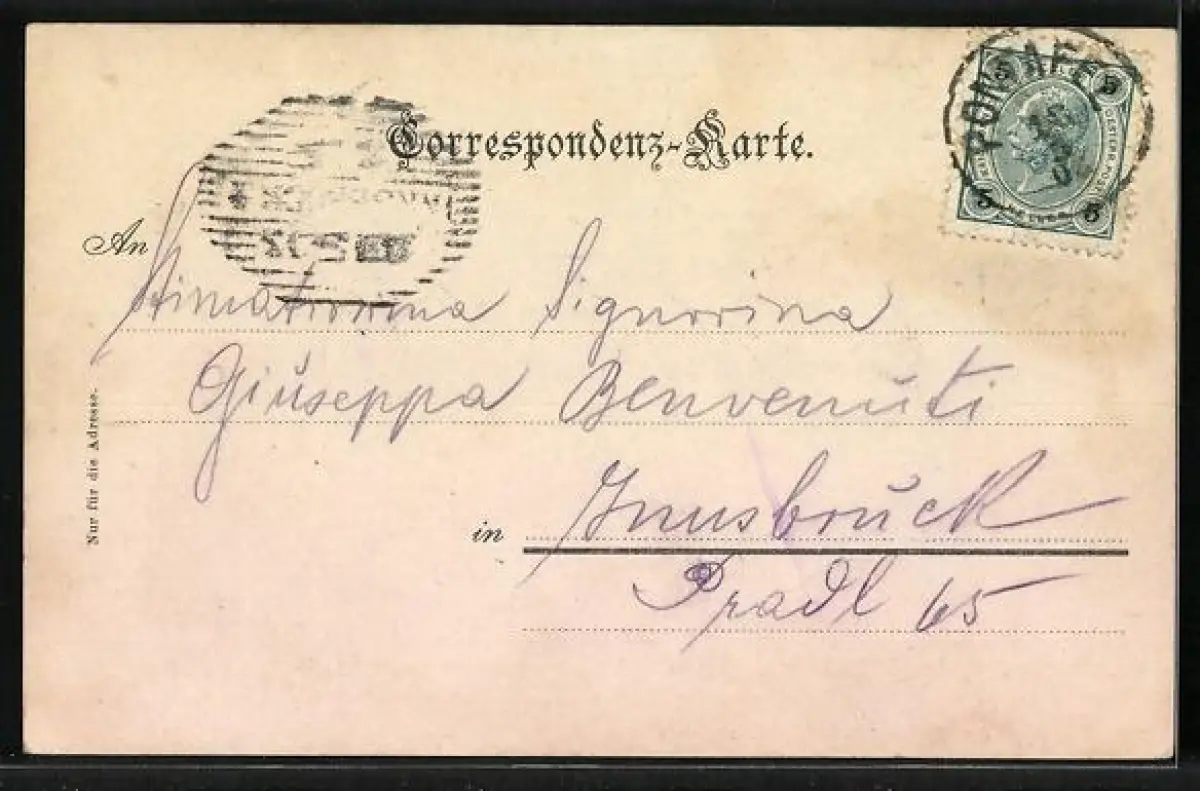 Correspondenz-Karte.
5 5
5 5
An
Stimatissima Signorina
Giuseppa Benvenuti
in Innsbruck
Pradl 65
Nur für die Adresse.